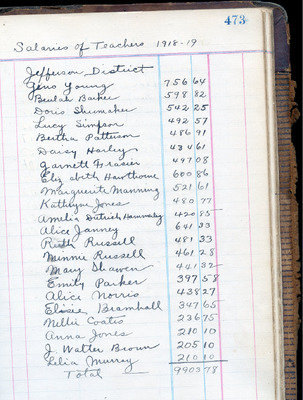 473
Salaries of Teachers 1918-19
Jefferson District
Geno Young 756 64
Beulah Baker 598 82
Doris Shumaker 542 25
Lucy Simpson 492 57
Bertha Patterson 486 91
Daisy Hasley 484 61
Garnett Frasier 497 08
Elizabeth Hawthorne 600 86
Marguerite Manning 521 61
Kathryne Jones 480 77
Amelia Dutrich Hammersley 420 85
Alice Janney 641 33
Ruth Russell 481 33
Minnie Russell 461 28
Mary Shawen 441 32
Emily Parker 397 58
Alice Norris 438 27
Elsie Bramhall 347 65
Nellie Coates 236 75
Anna Jones 210 10
J. Walter Brown 205 10
Lelia Murray 210 10
Total 9903 78